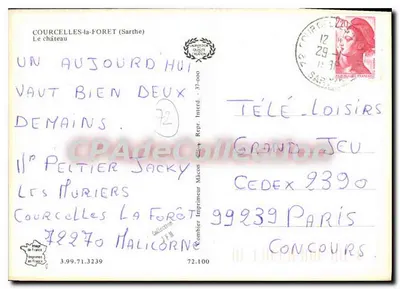 COURCELLES-la-FORET (Sarthe)
Le château
UN AUJOURD'HUI
VAUT BIEN DEUX
DEMAINS.
72
Mr PELTIER JACKY
LES MURIERS
COURCELLES LA FORÊT
72270 MALICORNE
3.99.71.3239
72.100
Combier Imprimeur Mâcon
Repr. Interd. 37-000
TÉLÉ-LOISIRS
GRAND JEU
CEDEX 2390
99239 PARIS
CONCOURS
CPArteCollection